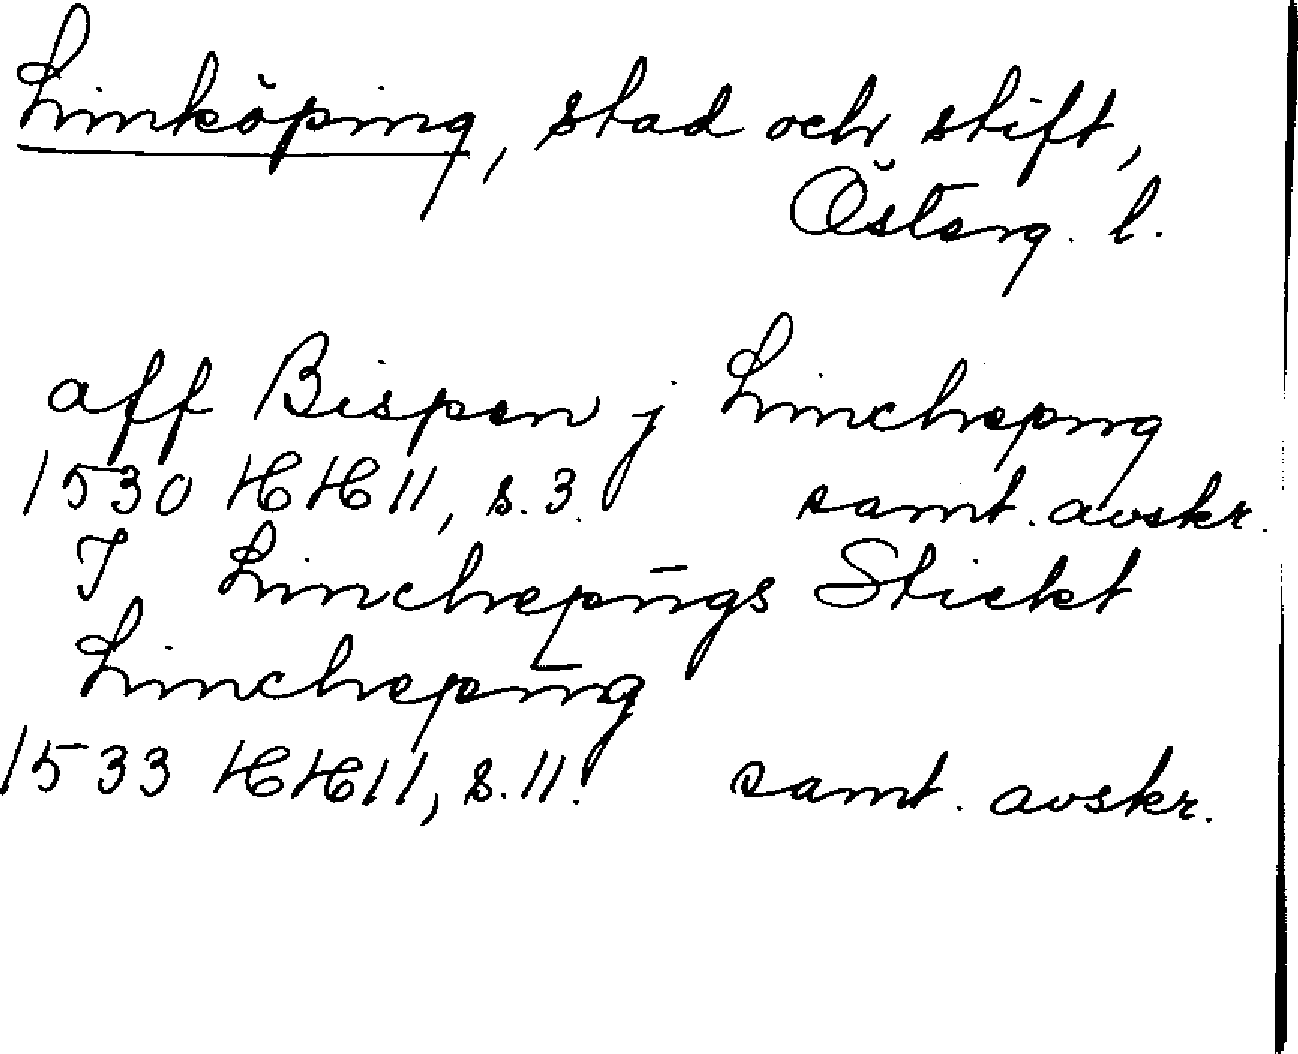 Linköping, stad och stift,
Österg. l.
aff Bispen j Linchepng
1530 HH 11, s. 3. samt. avskr.
I Linchepn̄gs Stickt
Linchepn̄g
1533 HH 11, s. 11. samt. avskr.